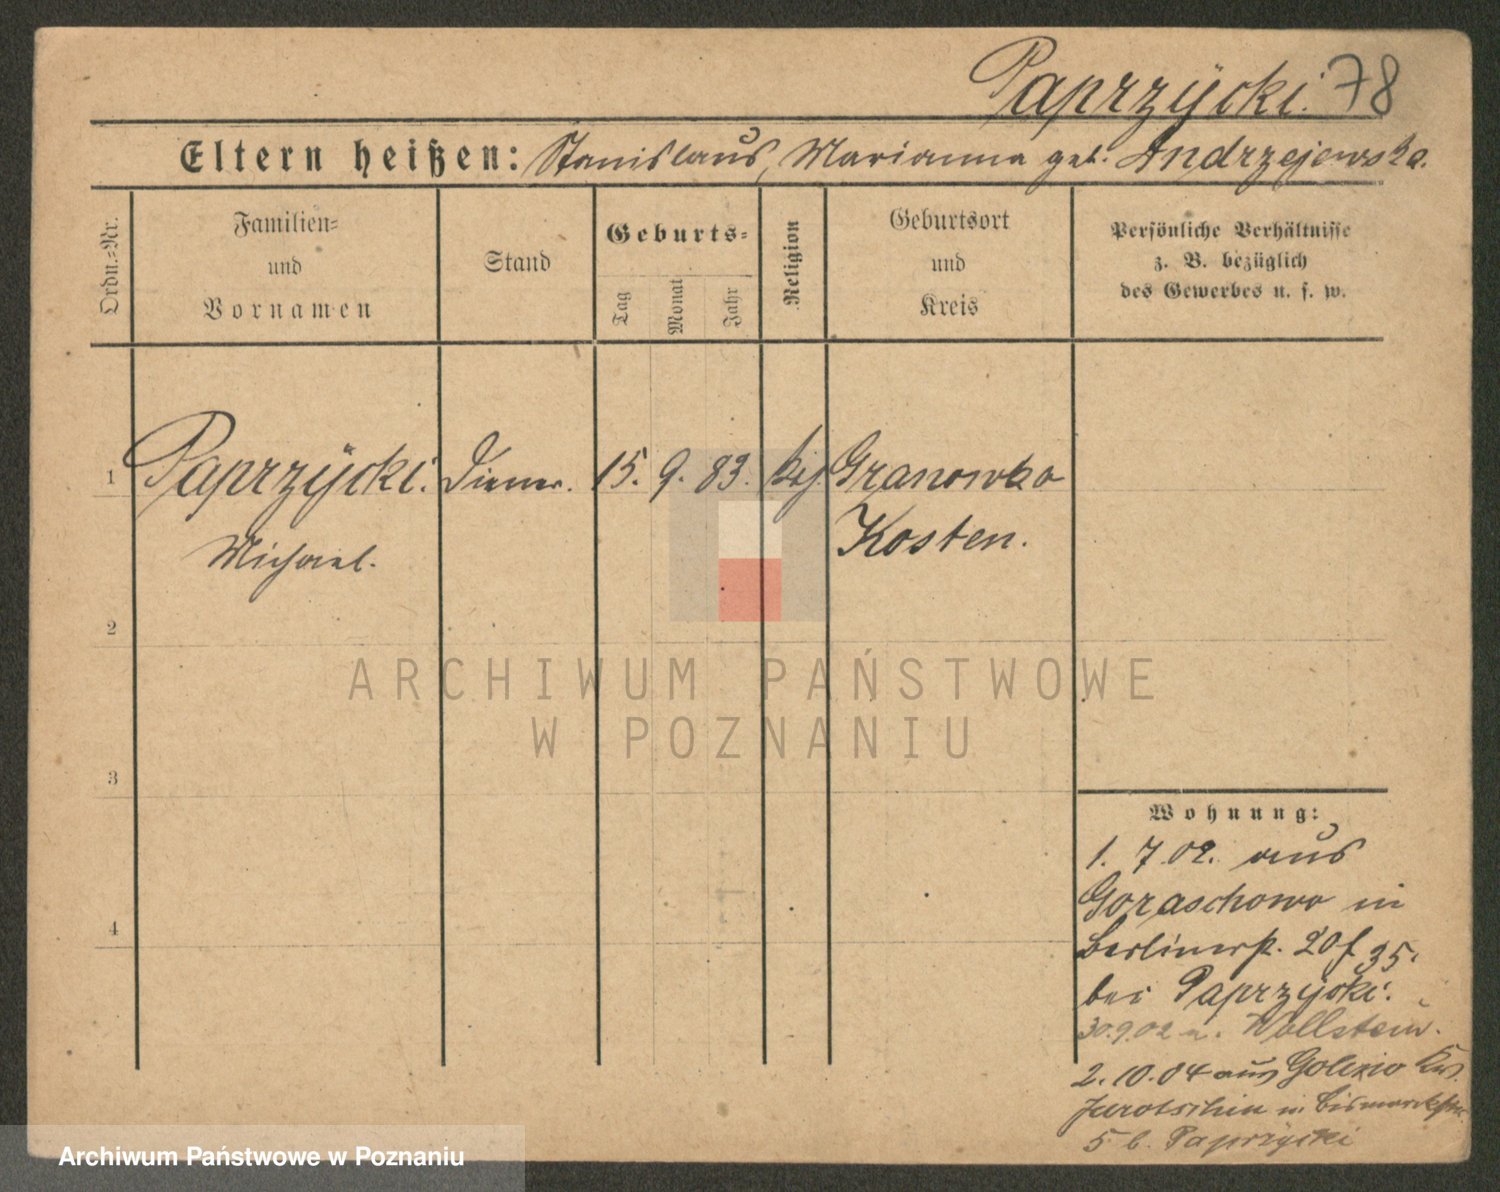 Paprzÿcki. 78
Eltern heißen: Stanislaus, Marianna geb. Andrzejewska.
Ordn.-Nr.
Familien-
und
Vornamen
Stand
Geburts-
Tag
Monat
Jahr
Religion
Geburtsort
und
Kreis
Persönliche Verhältnisse
z. B. bezüglich
des Gewerbes u. s. w.
1 Paprzÿcki. Diener. 15. 9. 83. Granowko
Michael. Kosten.
2
3
4
Wohnung:
1. 7 02. aus
Goraschowo in
Berlinerst. 20 f 35.
bei Paprzÿcki.
30.9.02 n. Wollstein.
2. 10. 04 aus
Jarotschin in Bismarckstr
5 b. Paprzycki
ARCHIWUM PAŃSTWOWE
W POZNANIU
Archiwum Państwowe w Poznaniu